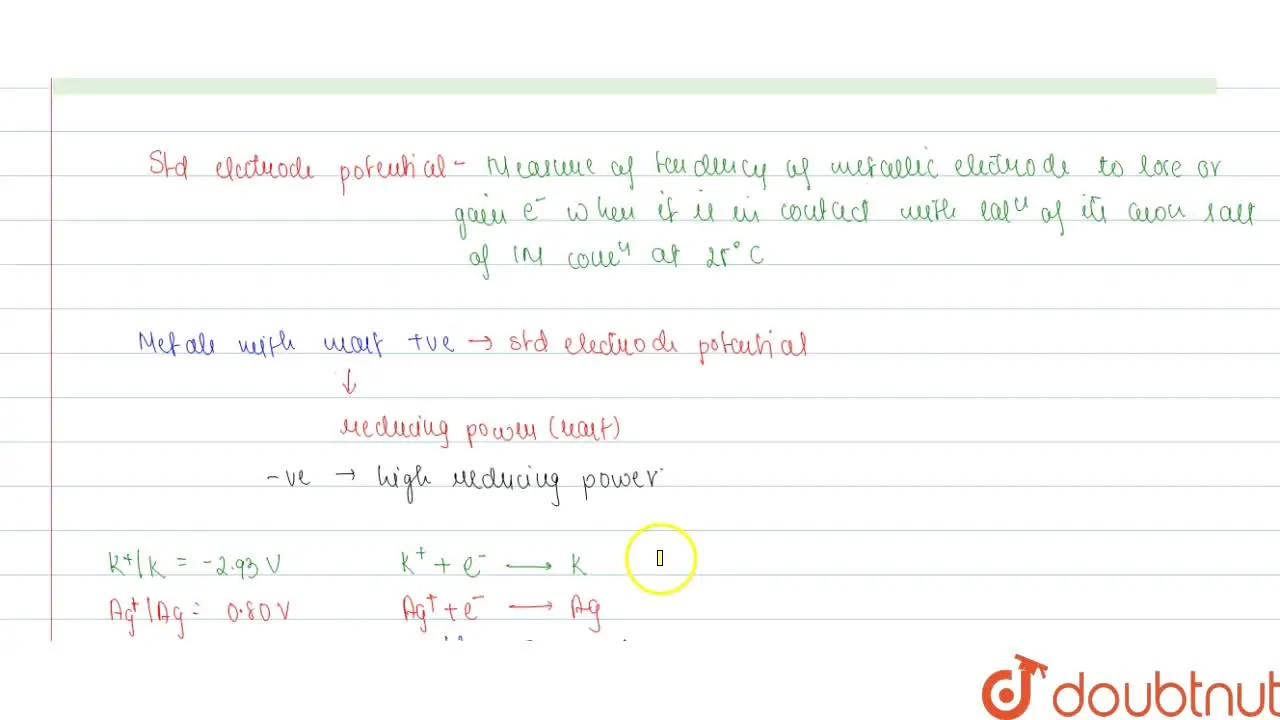 Std electrode potential - Measure of tendency of metallic electrode to lose or
gain e⁻ when it is in contact with solⁿ of its own salt
of 1M concⁿ at 25°C
Metals with most +ve → std electrode potential
↓
reducing power (least)
-ve → high reducing power
K⁺/K = -2.93 V K⁺ + e⁻ → K
Ag⁺/Ag = 0.80 V Ag⁺ + e⁻ → Ag
doubtnut